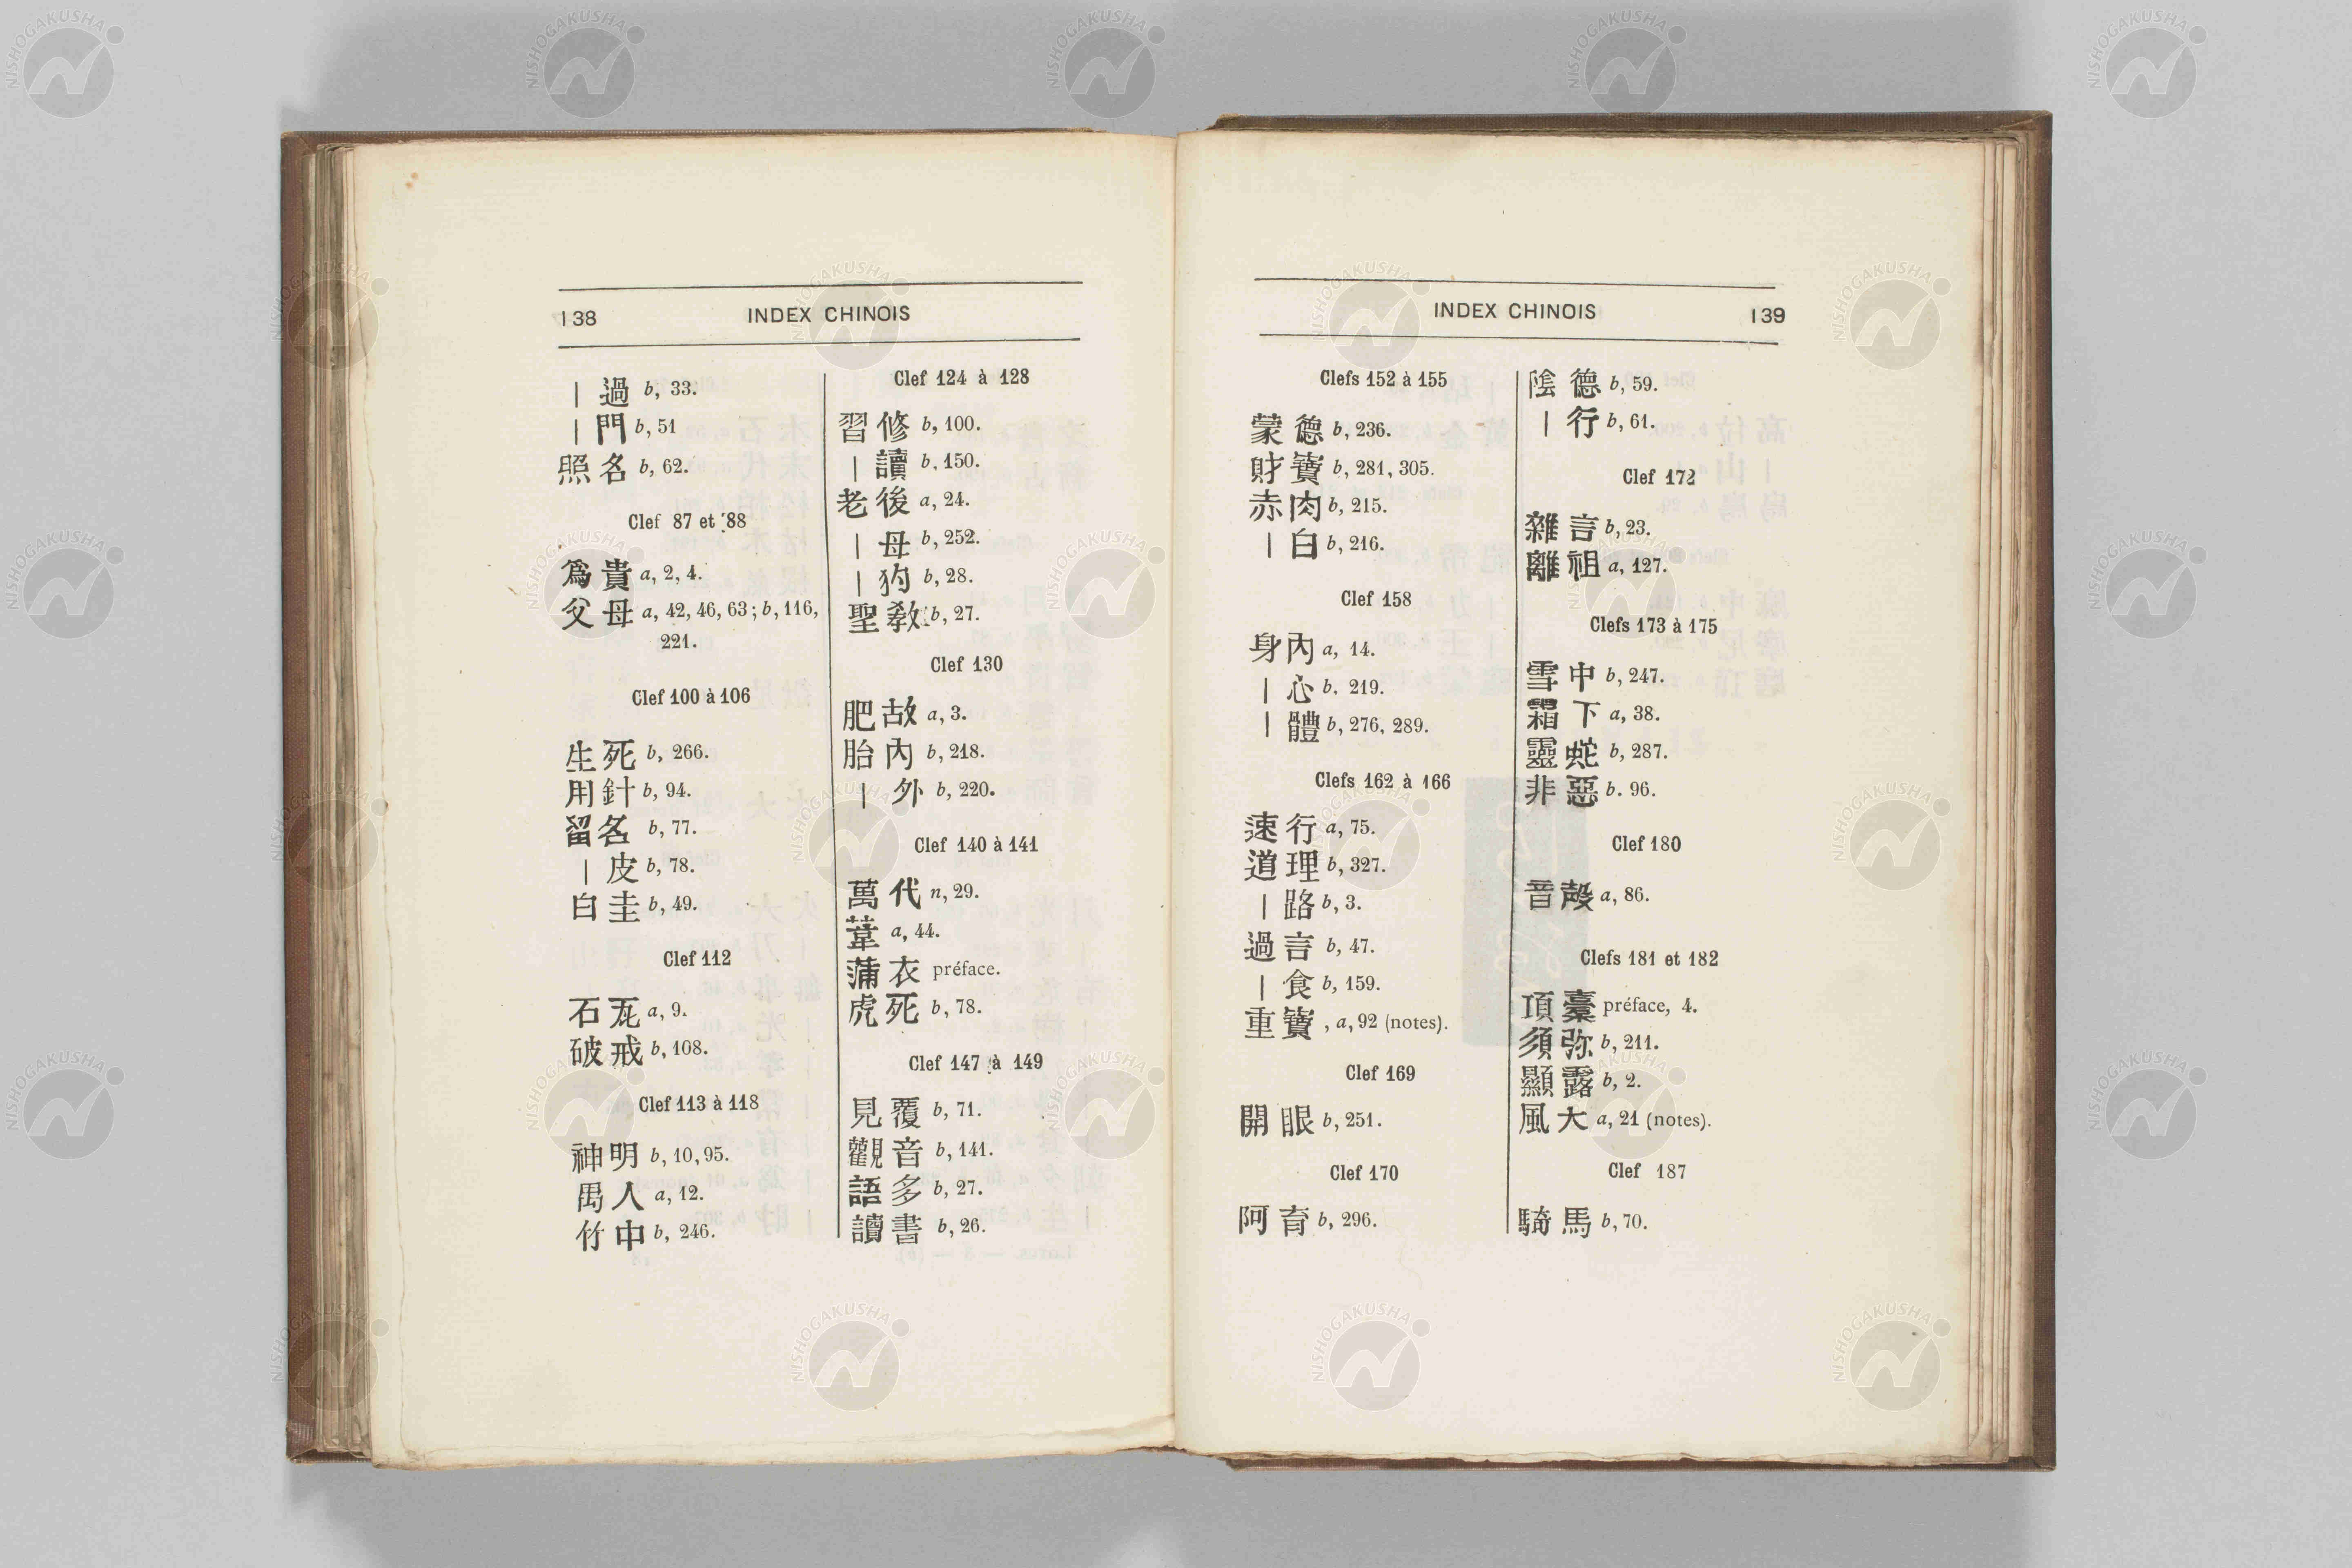 138
INDEX CHINOIS
| 過 b, 33.
| 門 b, 51
照名 b, 62.
Clef 87 et 88
爲貴 a, 2, 4.
父母 a, 42, 46, 63; b, 116,
221.
Clef 100 à 106
生死 b, 266.
用針 b, 94.
留名 b, 77.
| 皮 b, 78.
白圭 b, 49.
Clef 112
石瓦 a, 9.
破戒 b, 108.
Clef 113 à 118
神明 b, 10, 95.
禺人 a, 12.
竹中 b, 246.
Clef 124 à 128
習修 b, 100.
| 讀 b, 150.
老後 a, 24.
| 母 b, 252.
| 狗 b, 28.
聖教 b, 27.
Clef 130
肥故 a, 3.
胎內 b, 218.
| 外 b, 220.
Clef 140 à 141
萬代 n, 29.
葦 a, 44.
蒲衣 préface.
虎死 b, 78.
Clef 147 à 149
見覆 b, 71.
觀音 b, 141.
語多 b, 27.
讀書 b, 26.
INDEX CHINOIS
139
Clefs 152 à 155
蒙德 b, 236.
財寶 b, 281, 305.
赤肉 b, 215.
| 白 b, 216.
Clef 158
身內 a, 14.
| 心 b. 219.
| 體 b, 276, 289.
Clefs 162 à 166
速行 a, 75.
道理 b, 327.
| 路 b, 3.
過言 b, 47.
| 食 b, 159.
重寶, a, 92 (notes).
Clef 169
開眼 b, 251.
Clef 170
阿育 b, 296.
陰德 b, 59.
| 行 b, 61.
Clef 172
雜言 b, 23.
離祖 a, 127.
Clefs 173 à 175
雪中 b, 247.
霜下 a, 38.
靈蛇 b, 287.
非惡 b. 96.
Clef 180
音 a, 86.
Clefs 181 et 182
項橐 préface, 4.
須弥 b, 211.
顯露 b, 2.
風大 a, 21 (notes).
Clef 187
騎馬 b, 70.
NISHOGAKUSHA